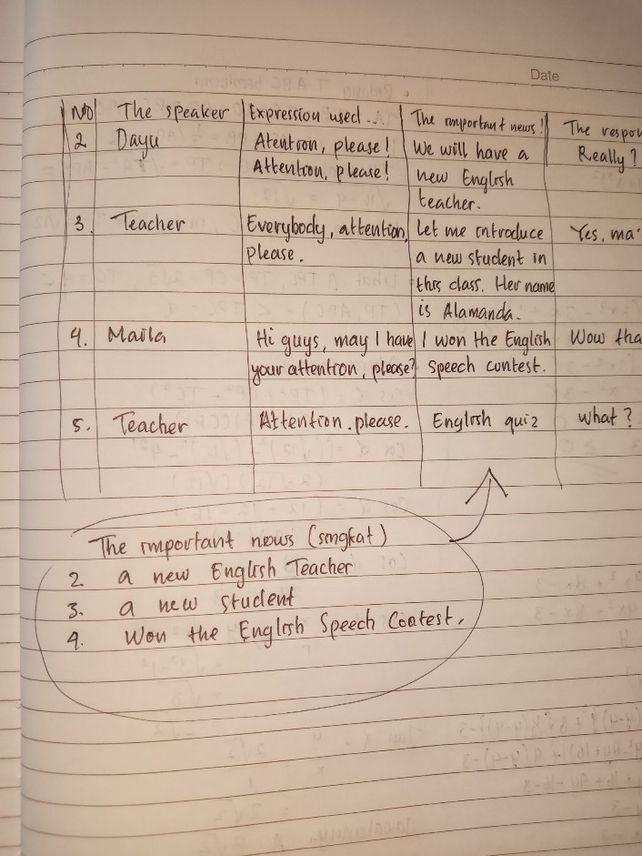 Date
No The speaker Expression used.. The important news! The respon
2 Dayu Atention, please! We will have a Really?
Attention, please! new English
teacher.
3. Teacher Everybody, attention, Let me introduce Yes, ma'
please. a new student in
this class. Her name
is Alamanda.
4. Maila Hi guys, may I have I won the English Wow tha
your attention, please? speech contest.
5. Teacher Attention.please. English quiz what?
The important news (singkat)
2. a new English Teacher
3. a new student
4. Won the English Speech Contest.